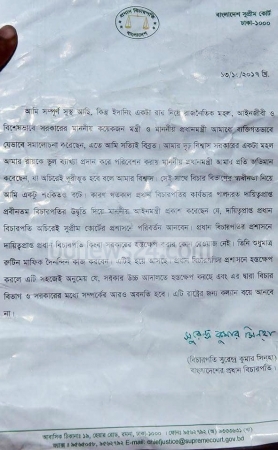 প্রধান বিচারপতি
বাংলাদেশ
বাংলাদেশ সুপ্রীম কোর্ট
ঢাকা-১০০০
১৩/১০/২০১৭ খ্রি.
আমি সম্পূর্ণ সুস্থ আছি, কিন্তু ইদানিং একটা রায় নিয়ে রাজনৈতিক মহল, আইনজীবী ও
বিশেষভাবে সরকারের মাননীয় কয়েকজন মন্ত্রী ও মাননীয় প্রধানমন্ত্রী আমাকে ব্যক্তিগতভাবে
যেভাবে সমালোচনা করেছেন, এতে আমি সত্যিই বিব্রত। আমার দৃঢ় বিশ্বাস সরকারের একটা মহল
আমার রায়কে ভুল ব্যাখ্যা প্রদান করে পরিবেশন করায় মাননীয় প্রধানমন্ত্রী আমার প্রতি অভিমান
করেছেন, যা অচিরেই দূরীভূত হবে বলে আমার বিশ্বাস। সেই সাথে বিচার বিভাগের স্বাধীনতা নিয়ে
আমি একটু শংকিতও বটে। কারণ গতকাল প্রধান বিচারপতির কার্যভার পালনরত দায়িত্বপ্রাপ্ত
প্রবীনতম বিচারপতির উদ্ধৃতি দিয়ে মাননীয় আইনমন্ত্রী প্রকাশ করেছেন যে, দায়িত্বপ্রাপ্ত প্রধান
বিচারপতি অচিরেই সুপ্রীম কোর্টের প্রশাসনে পরিবর্তন আনবেন। প্রধান বিচারপতির প্রশাসনে
দায়িত্বপ্রাপ্ত প্রধান বিচারপতি কিংবা সরকারের হস্তক্ষেপ করার কোন রেওয়াজ নেই। তিনি শুধুমাত্র
রুটিন মাফিক দৈনন্দিন কাজ করবেন। এটিই হয়ে আসছে। প্রধান বিচারপতির প্রশাসনে হস্তক্ষেপ
করলে এটি সহজেই অনুমেয় যে, সরকার উচ্চ আদালতে হস্তক্ষেপ করছে এবং এর দ্বারা বিচার
বিভাগ ও সরকারের মধ্যে সম্পর্কের আরও অবনতি হবে। এটি রাষ্ট্রের জন্য কল্যাণ বয়ে আনবে
না।
সুরেন্দ্র কুমার সিনহা
(বিচারপতি সুরেন্দ্র কুমার সিনহা)
বাংলাদেশের প্রধান বিচারপতি।